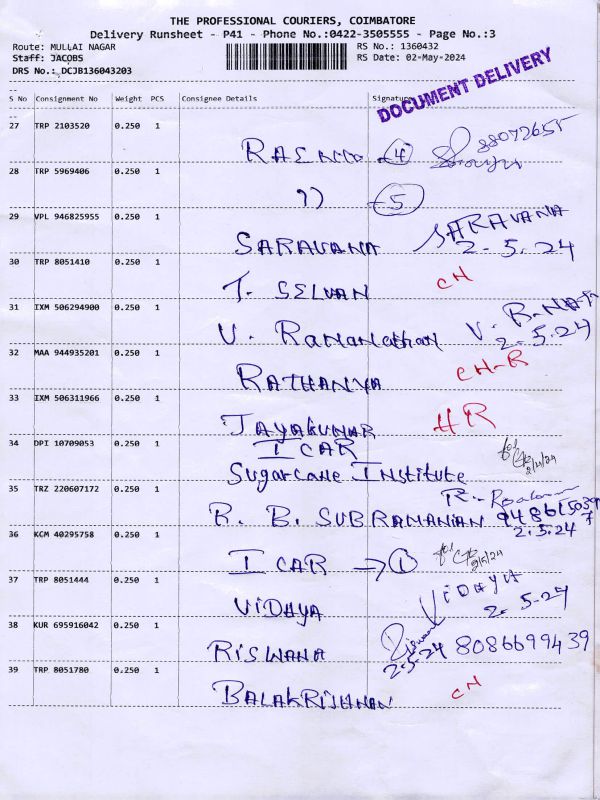 THE PROFESSIONAL COURIERS, COIMBATORE
Delivery Runsheet - P41 - Phone No.:0422-3505555 - Page No.:3
Route: MULLAI NAGAR RS No.: 1360432
Staff: JACOBS RS Date: 02-May-2024
DRS No.: DCJB136043203
DOCUMENT DELIVERY
S No Consignment No Weight PCS Consignee Details Signature
27 TRP 2103520 0.250 1
4 88072655
28 TRP 5969406 0.250 1
11 5
29 VPL 946825955 0.250 1
SARAVANA SARAVANA
2.5.24
30 TRP 8051410 0.250 1
T. SELVAN CH
31 IXM 506294900 0.250 1
V. Ramanathan V. 2.5.24
32 MAA 944935201 0.250 1
RATHANYA CH-R
33 IXM 506311966 0.250 1
JAYAKUMAR HR
34 DPI 10709053 0.250 1
ICAR
Sugarcane Institute
35 TRZ 220607172 0.250 1
R. B. SUBRAMANIAN
2.5.24
36 KCM 40295758 0.250 1
ICAR → 1
37 TRP 8051444 0.250 1
VIDHYA VIDHYA
2.5.24
38 KUR 695916042 0.250 1
RISWANA 2.5.24 8086699439
39 TRP 8051780 0.250 1
BALAKRISHNAN CH